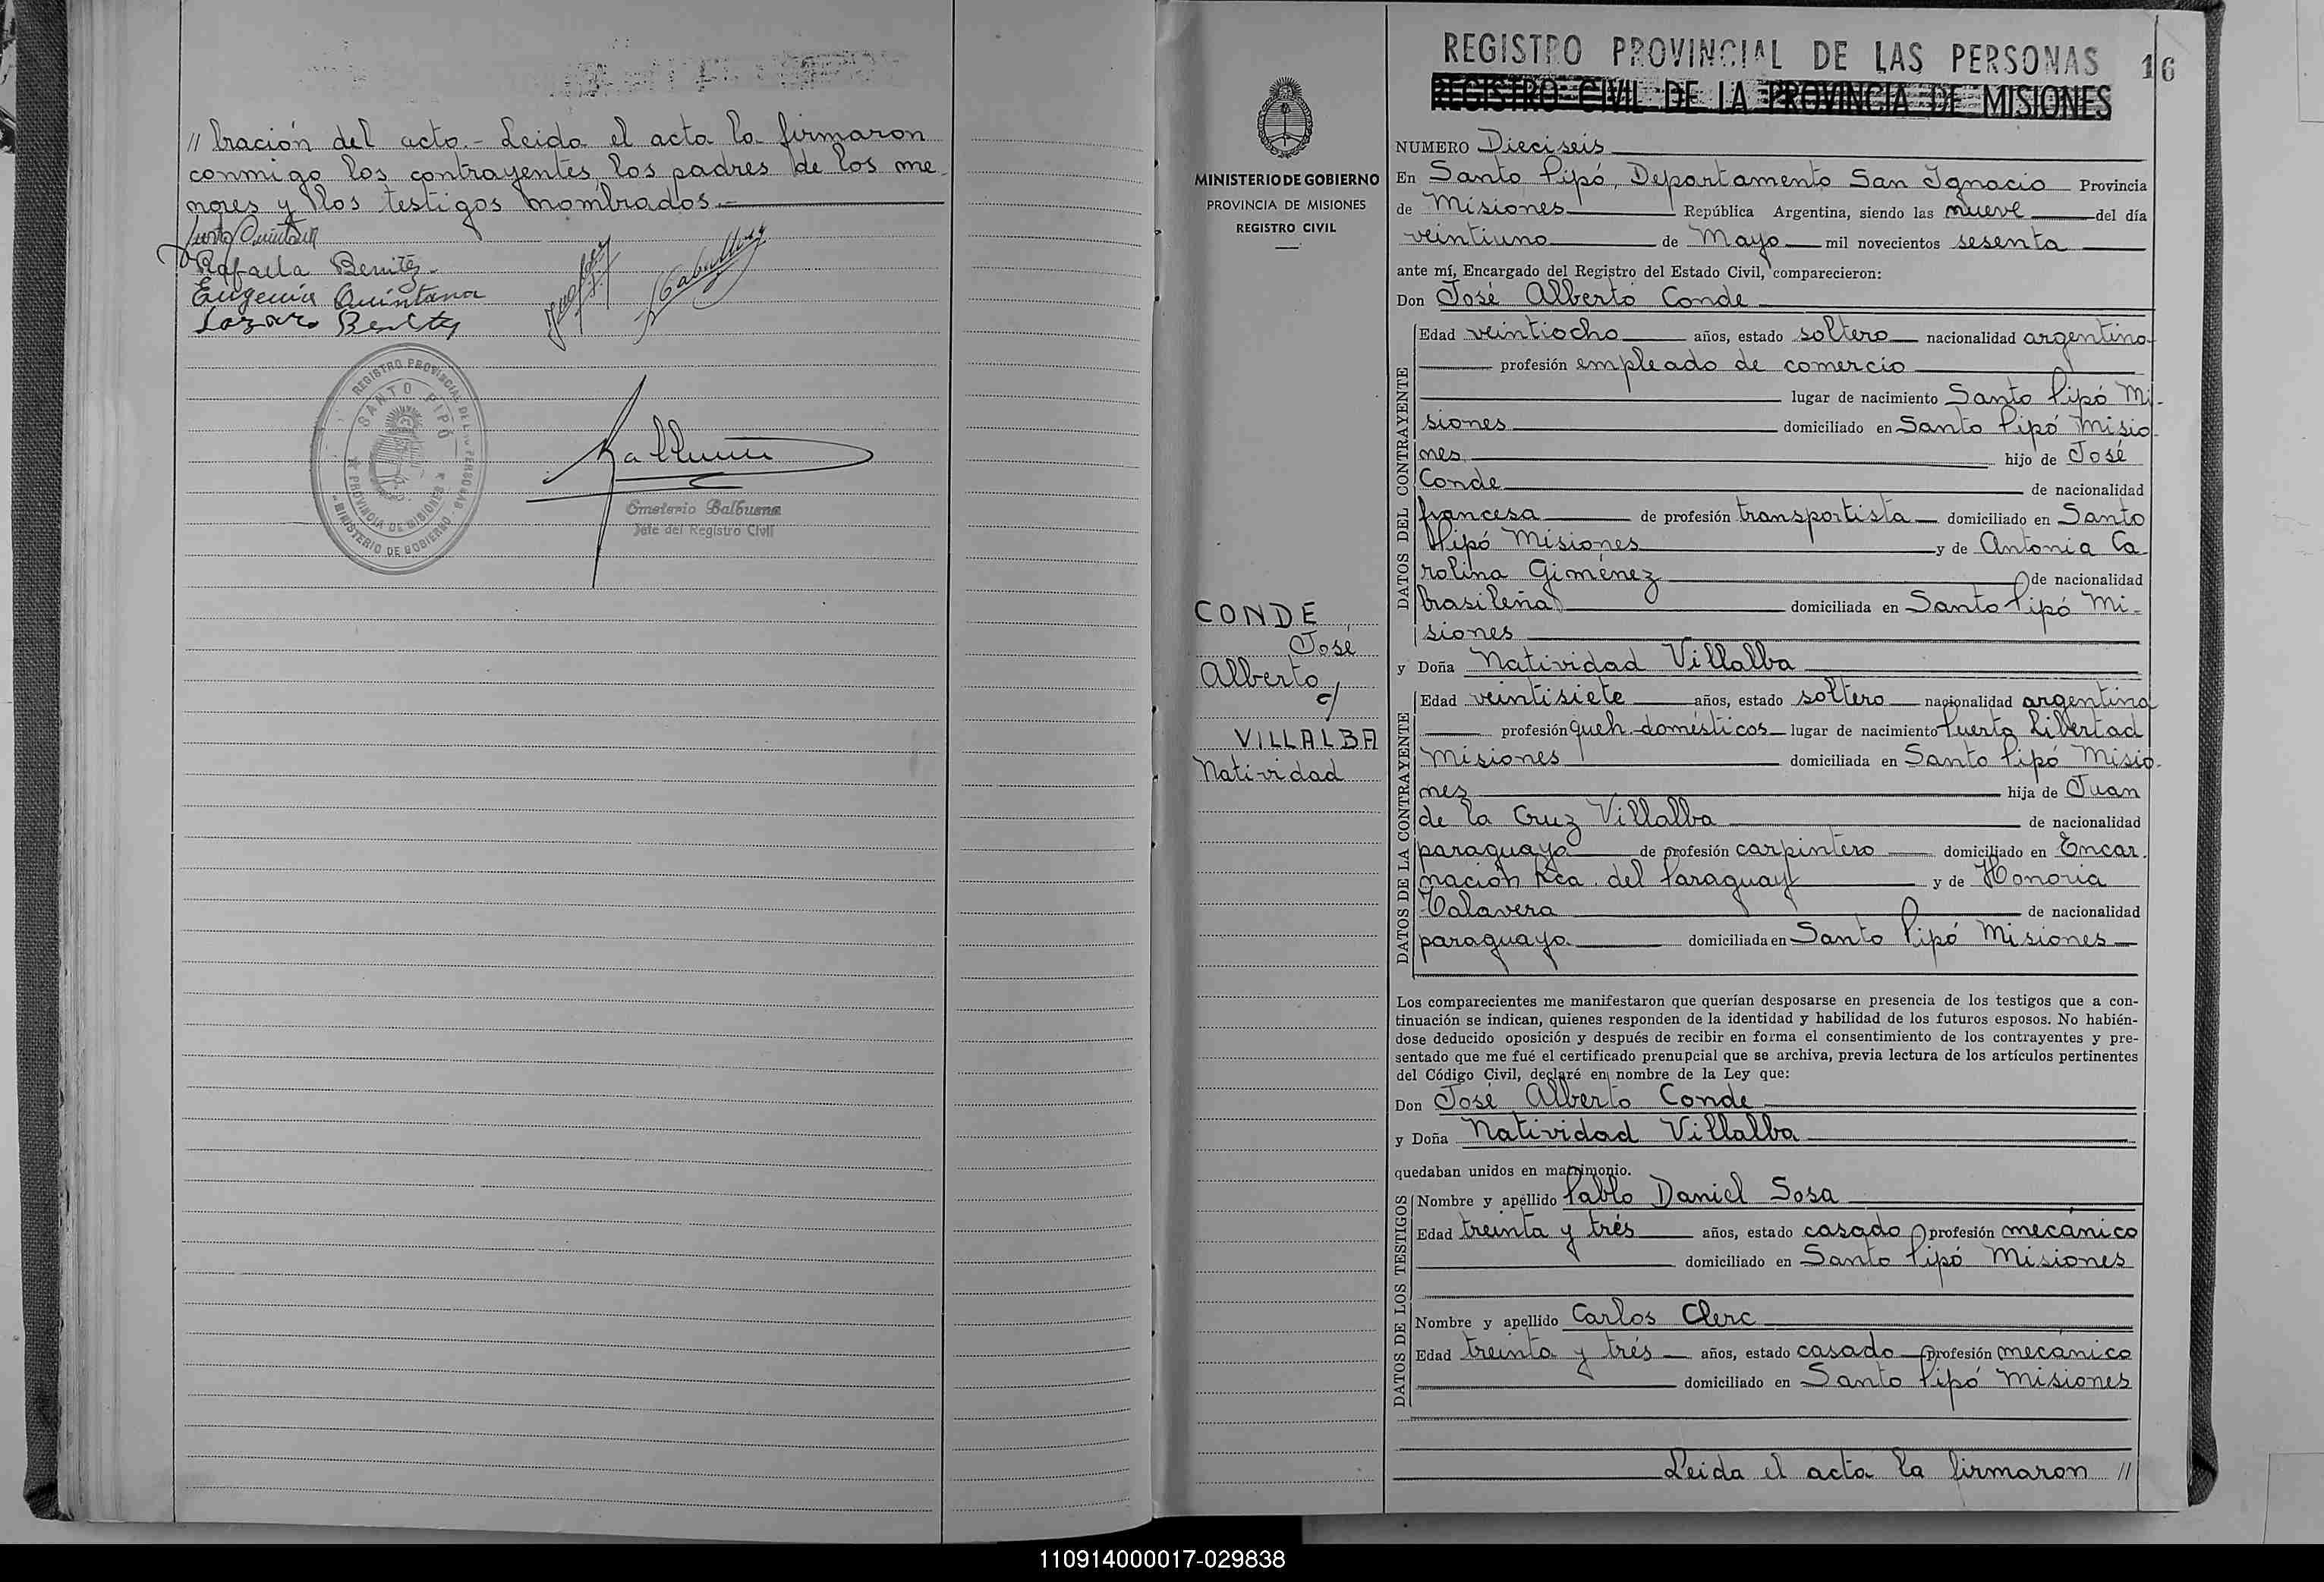 // bración del acto.- Leida el acta la firmaron
conmigo los contrayentes, los padres de los me
nores y los testigos nombrados.-
Justo Quintana
Rafaela Benitez
Eugenia Quintana
Lazaro Benitez
REGISTRO PROVINCIAL DE LAS PERSONAS
SANTO PIPÓ
PROVINCIA DE MISIONES
MINISTERIO DE GOBIERNO
Emeterio Balbuena
Jefe del Registro Civil
MINISTERIO DE GOBIERNO
PROVINCIA DE MISIONES
REGISTRO CIVIL
CONDE
José
Alberto
c/
VILLALBA
Natividad
REGISTRO PROVINCIAL DE LAS PERSONAS 16
REGISTRO CIVIL DE LA PROVINCIA DE MISIONES
NUMERO Dieciseis
En Santo Pipó, Departamento San Ignacio Provincia
de Misiones República Argentina, siendo las nueve del día
veintiuno de Mayo mil novecientos sesenta
ante mí, Encargado del Registro del Estado Civil, comparecieron:
Don José Alberto Conde
DATOS DEL CONTRAYENTE
Edad veintiocho años, estado soltero nacionalidad argentina
profesión empleado de comercio
lugar de nacimiento Santo Pipó Mi-
siones domiciliado en Santo Pipó Misio-
nes hijo de José
Conde de nacionalidad
francesa de profesión transportista domiciliado en Santo
Pipó Misiones y de Antonia Ca
rolina Giménez de nacionalidad
brasileña domiciliada en Santo Pipó Mi-
siones
y Doña Natividad Villalba
DATOS DE LA CONTRAYENTE
Edad veintisiete años, estado soltero nacionalidad argentina
profesión queh. domésticos lugar de nacimiento Puerto Libertad
Misiones domiciliada en Santo Pipó Misio-
nes hija de Juan
de la Cruz Villalba de nacionalidad
paraguaya de profesión carpintero domiciliado en Encar.
nación Rca. del Paraguay y de Honoria
Talavera de nacionalidad
paraguaya domiciliada en Santo Pipó Misiones
Los comparecientes me manifestaron que querían desposarse en presencia de los testigos que a con-
tinuación se indican, quienes responden de la identidad y habilidad de los futuros esposos. No habién-
dose deducido oposición y después de recibir en forma el consentimiento de los contrayentes y pre-
sentado que me fué el certificado prenupcial que se archiva, previa lectura de los artículos pertinentes
del Código Civil, declaré en nombre de la Ley que:
Don José Alberto Conde
y Doña Natividad Villalba
quedaban unidos en matrimonio.
DATOS DE LOS TESTIGOS
Nombre y apellido Pablo Daniel Sosa
Edad treinta y trés años, estado casado profesión mecánico
domiciliado en Santo Pipó Misiones
Nombre y apellido Carlos Clerc
Edad treinta y trés años, estado casado profesión mecánico
domiciliado en Santo Pipó Misiones
Leida el acta la firmaron //
110914000017-029838